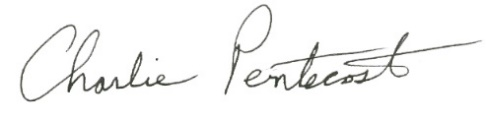 Charlie Pentecost